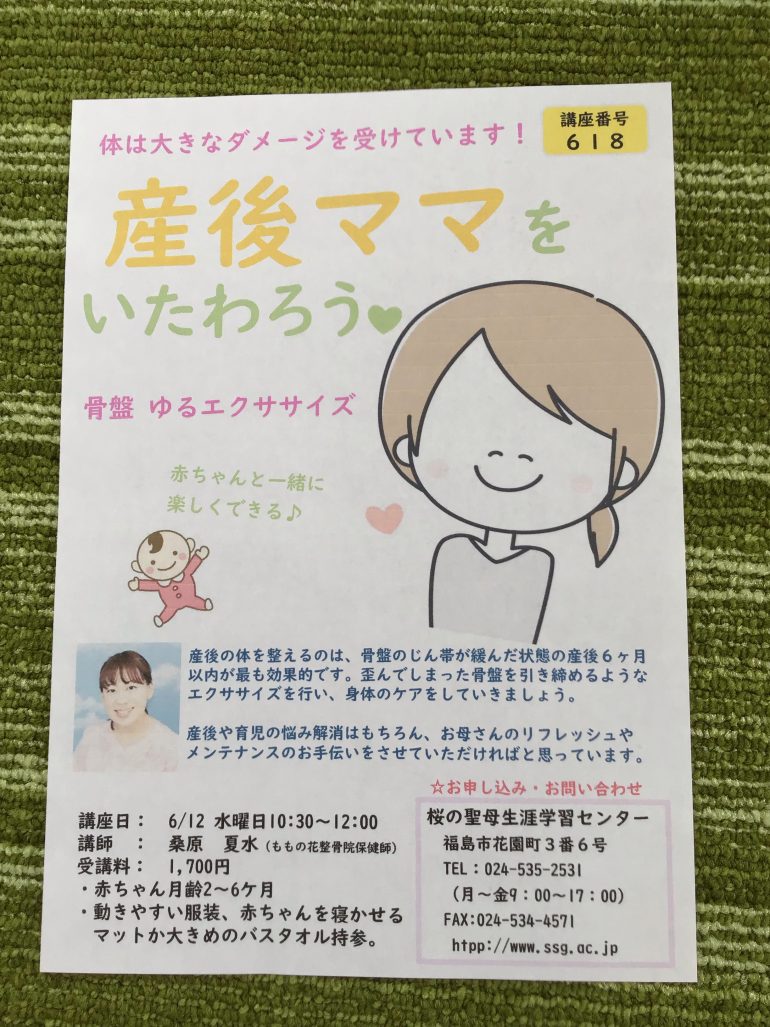 体は大きなダメージを受けています！
講座番号
618
産後ママを
いたわろう♥
骨盤 ゆるエクササイズ
赤ちゃんと一緒に
楽しくできる♪
産後の体を整えるのは、骨盤のじん帯が緩んだ状態の産後６ヶ月
以内が最も効果的です。歪んでしまった骨盤を引き締めるような
エクササイズを行い、身体のケアをしていきましょう。
産後や育児の悩み解消はもちろん、お母さんのリフレッシュや
メンテナンスのお手伝いをさせていただければと思っています。
講座日： 6/12 水曜日10:30～12:00
講師 ： 桑原 夏水（ももの花整骨院保健師）
受講料： 1,700円
・赤ちゃん月齢2～6ケ月
・動きやすい服装、赤ちゃんを寝かせる
マットか大きめのバスタオル持参。
☆お申し込み・お問い合わせ
桜の聖母生涯学習センター
福島市花園町３番６号
TEL：024-535-2531
（月～金9：00～17：00）
FAX:024-534-4571
htpp://www.ssg.ac.jp